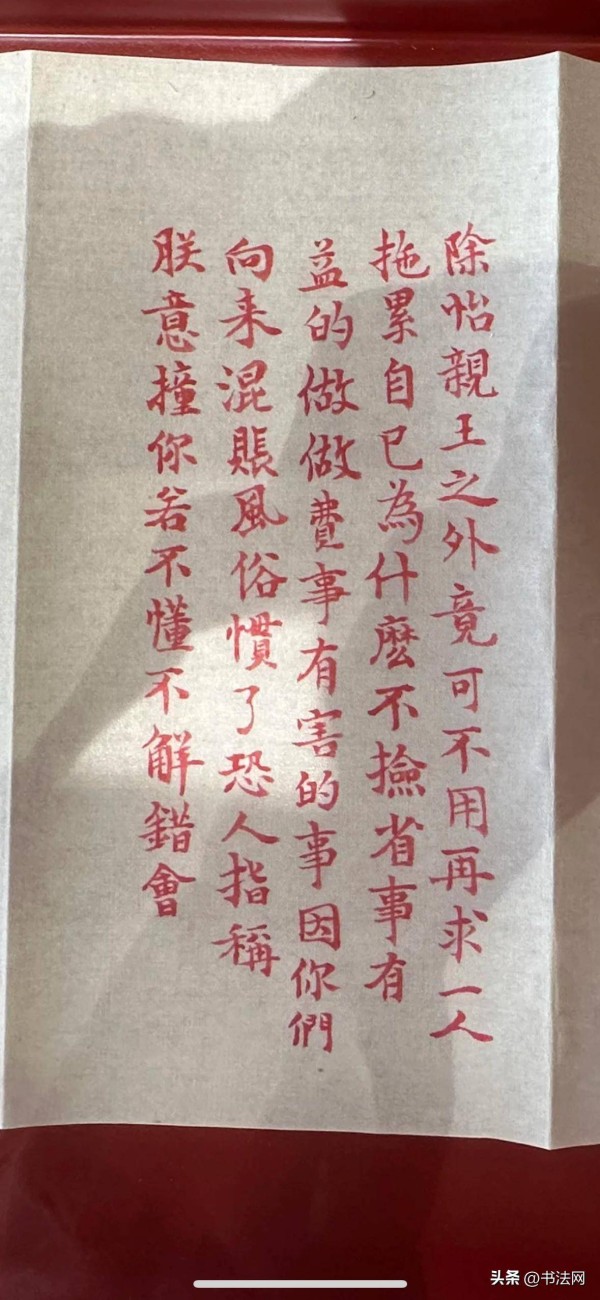 除怡親王之外竟可不用再求一人
拖累自已為什麽不撿省事有
益的做做費事有害的事因你們
向来混賬風俗慣了恐人指稱
朕意撞你若不懂不解錯會
头条 @书法网